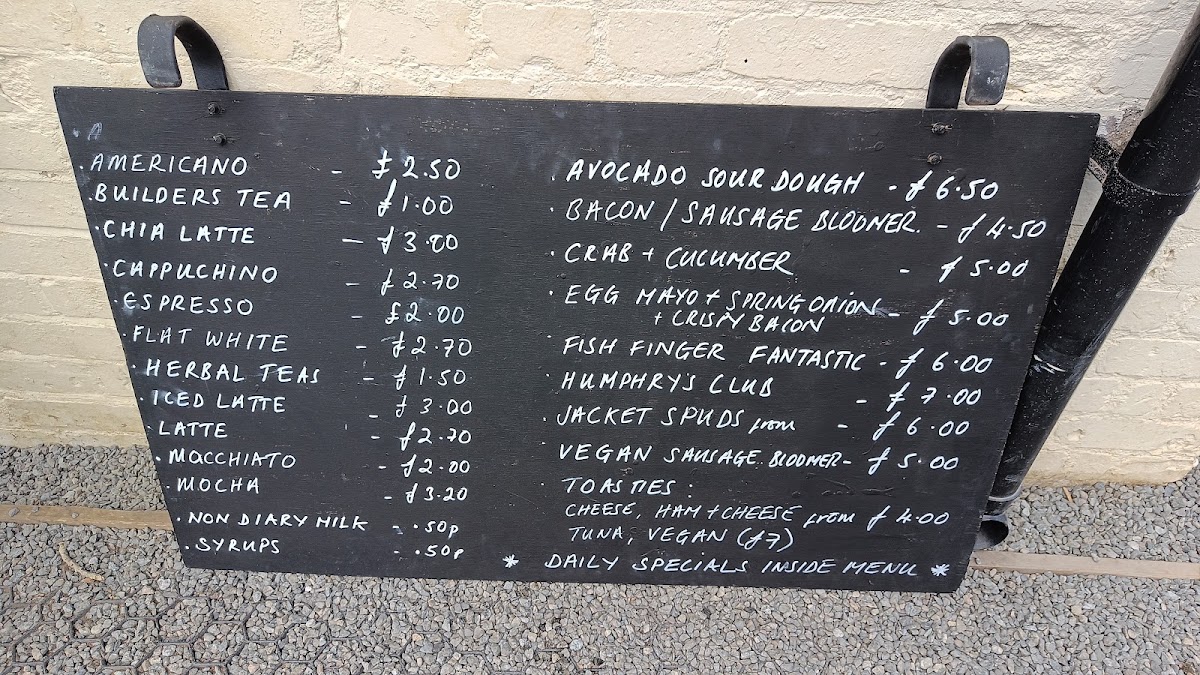 A
· AMERICANO - £2.50
· BUILDERS TEA - £1.00
· CHIA LATTE - £3.00
· CAPPUCHINO - £2.70
· ESPRESSO - £2.00
· FLAT WHITE - £2.70
· HERBAL TEAS - £1.50
· ICED LATTE - £3.00
· LATTE - £2.70
· MACCHIATO - £2.00
· MOCHA - £3.20
· NON DIARY MILK - .50p
· SYRUPS - .50p
· AVOCADO SOUR DOUGH - £6.50
· BACON / SAUSAGE BLOOMER. - £4.50
· CRAB + CUCUMBER - £5.00
· EGG MAYO + SPRING ONION - £5.00
+ CRISPY BACON
FISH FINGER FANTASTIC - £6.00
· HUMPHRY'S CLUB - £7.00
· JACKET SPUDS from - £6.00
VEGAN SAUSAGE BLOOMER - £5.00
· TOASTIES :
CHEESE, HAM + CHEESE from £4.00
TUNA, VEGAN (£7)
* DAILY SPECIALS INSIDE MENU *